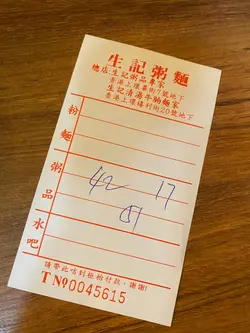 生記粥麵
總店:生記粥品專家
香港上環畢街7號地下
生記清湯牛腩麵家
香港上環禧利街20號地下
粉麵
粥品
水吧
42 17
請帶此咭到柜枱付款,謝謝!
T №0045615